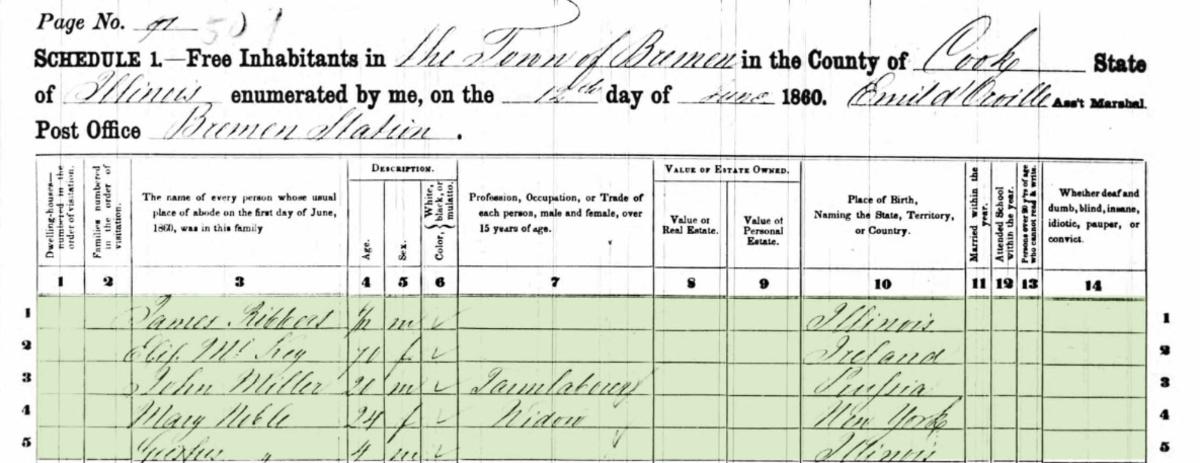 Page No. 91 501
SCHEDULE 1.—Free Inhabitants in the Town of Bremen in the County of Cook State
of Illinois enumerated by me, on the 12th day of June 1860. Emil d'Orville Ass't Marshal.
Post Office Bremen Station.
Dwelling-houses—numbered in the order of visitation.
Families numbered in the order of visitation.
The name of every person whose usual place of abode on the first day of June, 1860, was in this family
DESCRIPTION.
Age.
Sex.
Color, { White, black, or mulatto.
Profession, Occupation, or Trade of each person, male and female, over 15 years of age.
VALUE OF ESTATE OWNED.
Value of Real Estate.
Value of Personal Estate.
Place of Birth, Naming the State, Territory, or Country.
Married within the year.
Attended School within the year.
Persons over 20 y'rs of age who cannot read & write.
Whether deaf and dumb, blind, insane, idiotic, pauper, or convict.
1 2 3 4 5 6 7 8 9 10 11 12 13 14
1 James m Illinois 1
2 Elis. Mc Key 70 f Ireland 2
3 John Miller 20 m Farmlaborer Prussia 3
4 Mary Noble 24 f Widow New York 4
5 " 4 m Illinois 5